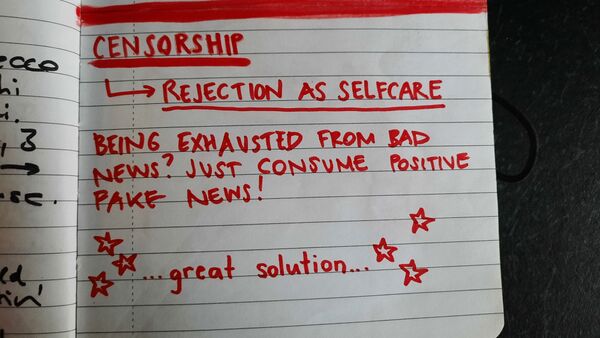 CENSORSHIP
REJECTION AS SELFCARE
BEING EXHAUSTED FROM BAD
NEWS? JUST CONSUME POSITIVE
FAKE NEWS!
...great solution...